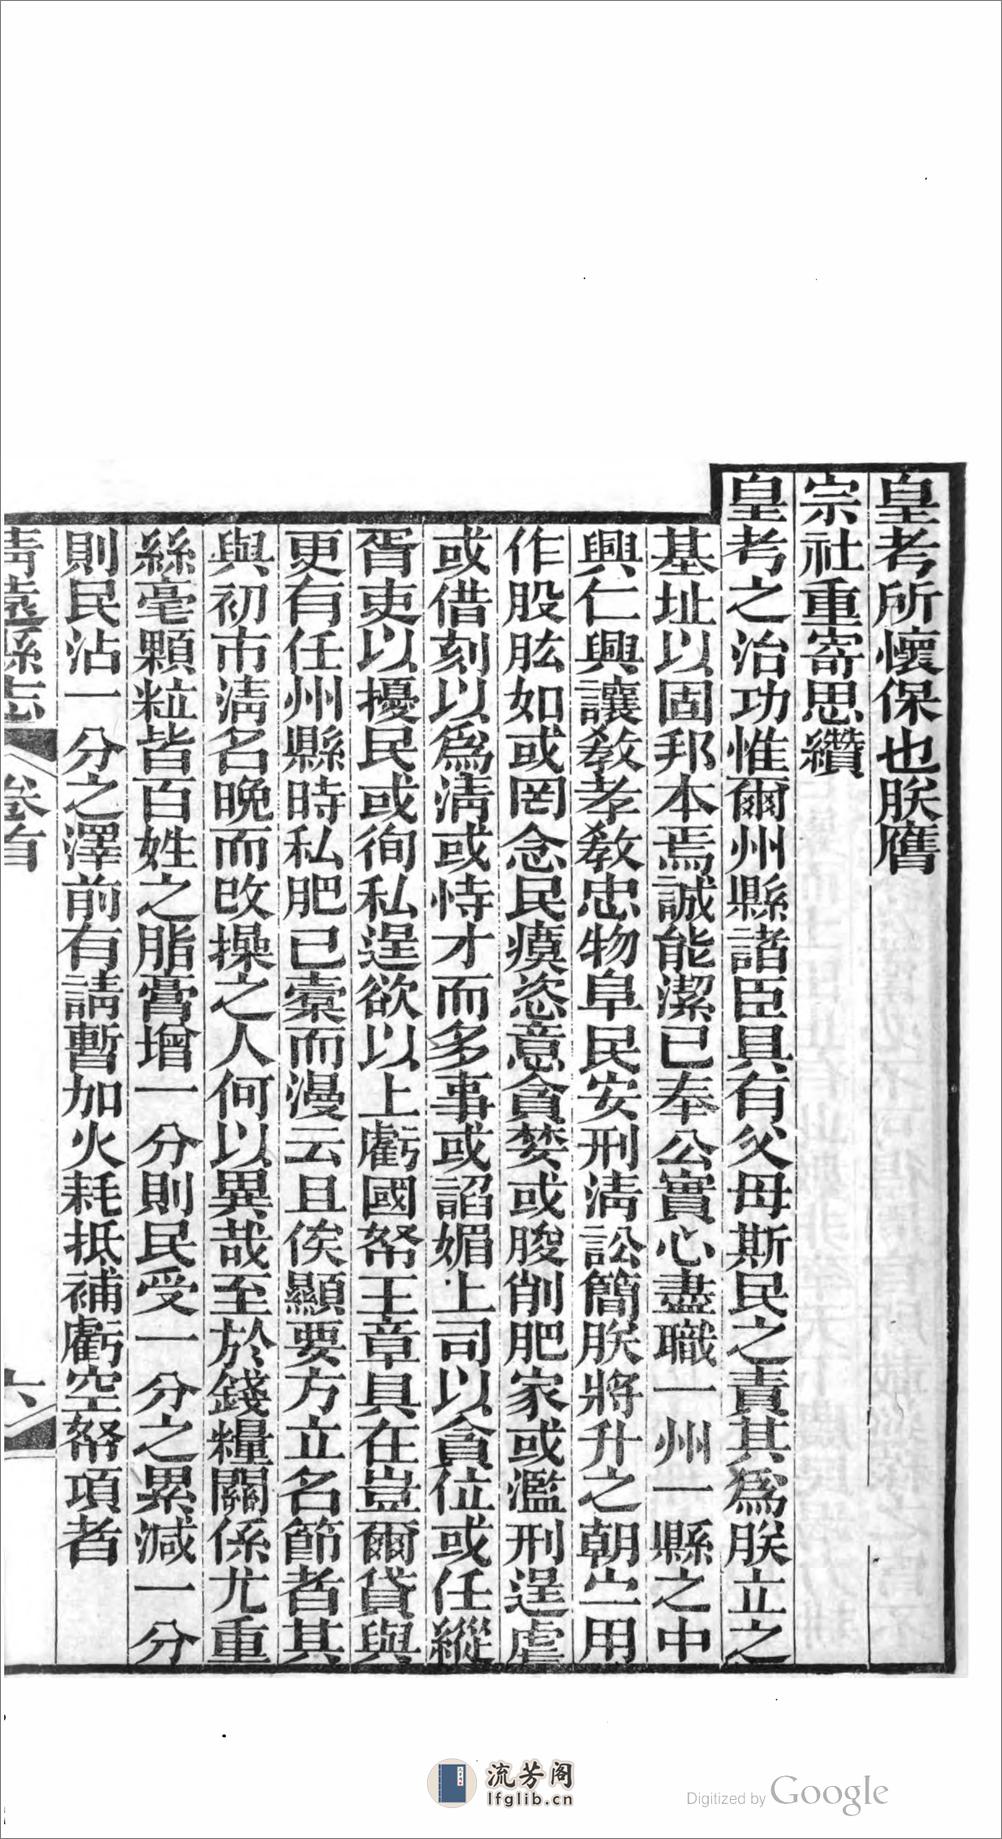 皇考所懷保也朕膺
宗社重寄思纘
皇考之治功惟爾州縣諸臣具有父母斯民之責其爲朕立之
基址以固邦本焉誠能潔已奉公實心盡職一州一縣之中
興仁興讓教孝教忠物阜民安刑淸訟簡朕將升之朝宁用
作股肱如或罔念民瘼恣意貪婪或朘削肥家或濫刑逞虐
或借刻以爲淸或恃才而多事或諂媚上司以貪位或任縱
胥吏以擾民或徇私逞欲以上虧國帑王章具在豈爾貸與
更有任州縣時私肥已橐而漫云且俟顯要方立名節者其
與初市淸名晩而改操之人何以異哉至於錢糧關係尤重
絲毫顆粒皆百姓之脂膏增一分則民受一分之累减一分
則民沾一分之澤前有請暫加火耗抵補虧空帑項者
淸遠縣志
卷首
六
流芳阁
lfglib.cn
Digitized by Google